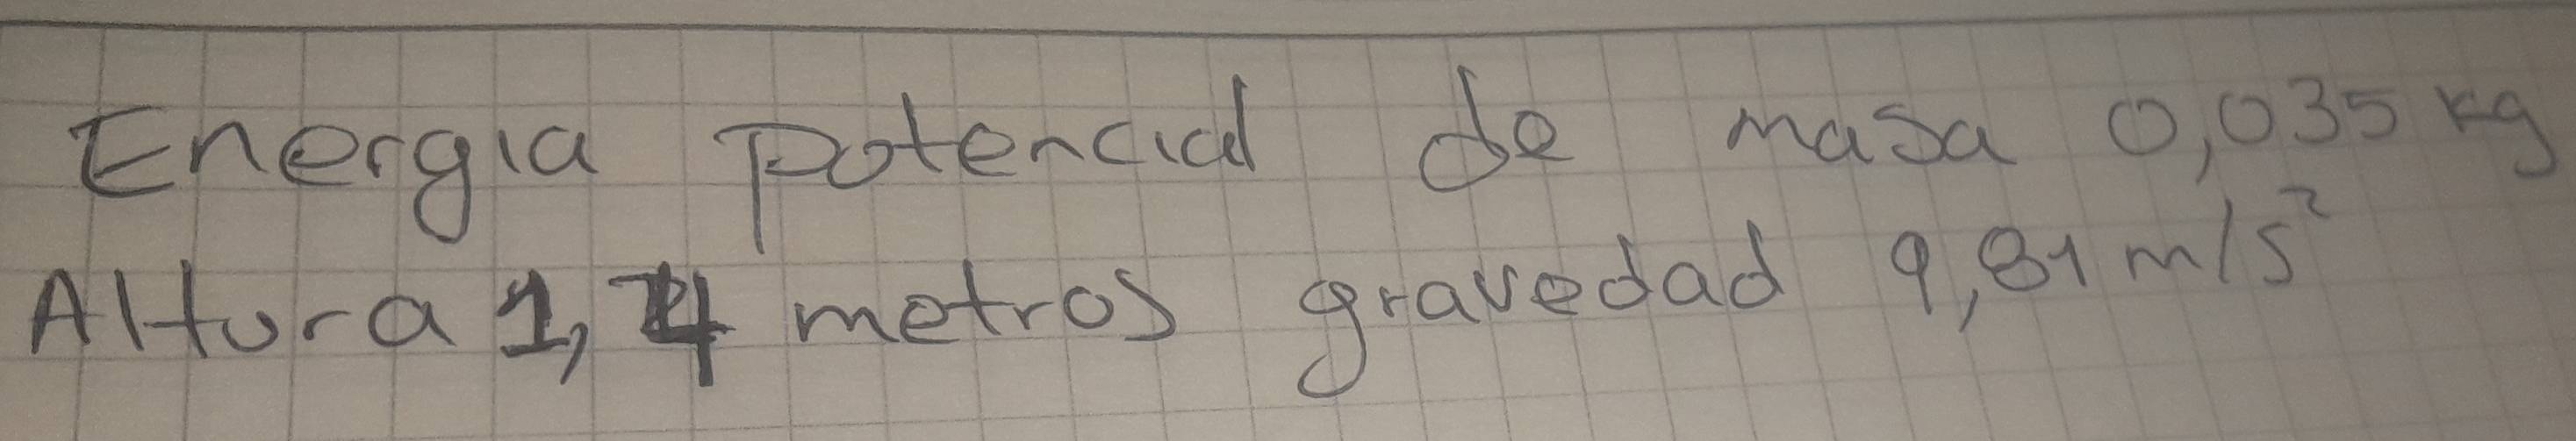 Energia potencial de masa 0,035 kg
Altura 1,4 metros gravedad 9,81 m/s²